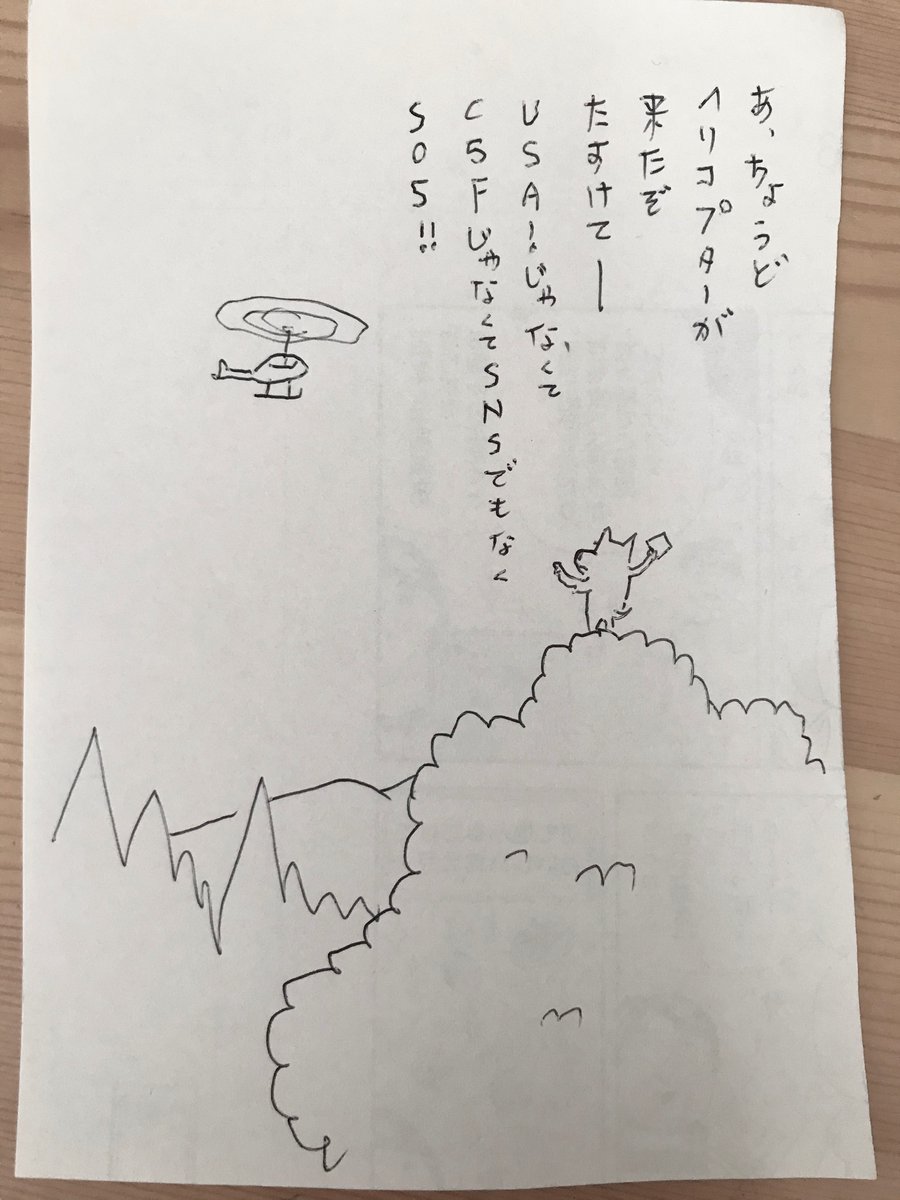 あ、ちょうど
ヘリコプターが
来たぞ
たすけてー
USA!じゃなくて
C5FじゃなくてSNSでもなく
S05!!